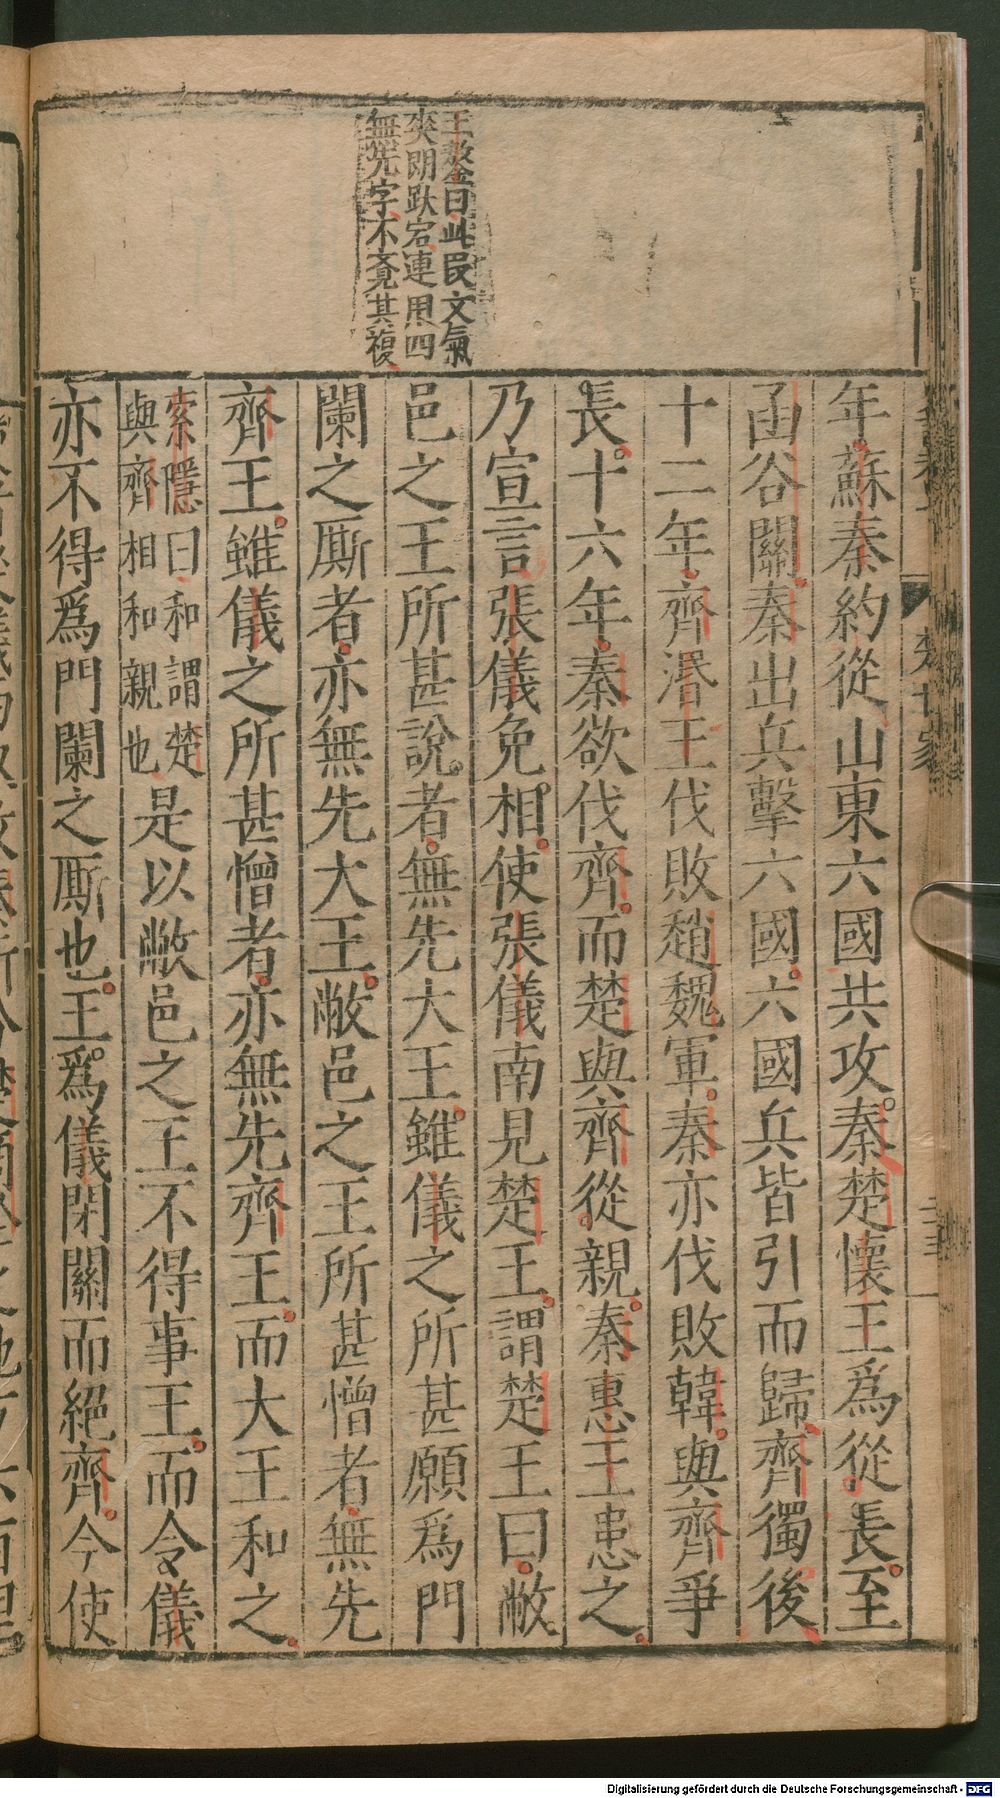 王鏊曰此段文氣
爽朗跌宕連用四
無先字不覺其複
年蘇秦約從山東六國共攻秦楚懷王爲從長至
函谷關秦出兵擊六國六國兵皆引而歸齊獨後
十二年齊湣王伐敗趙魏軍秦亦伐敗韓與齊爭
長十六年秦欲伐齊而楚與齊從親秦惠王患之
乃宣言張儀免相使張儀南見楚王謂楚王曰敝
邑之王所甚說者無先大王雖儀之所甚願爲門
闌之厮者亦無先大王敝邑之王所甚憎者無先
齊王雖儀之所甚憎者亦無先齊王而大王和之
索隱曰和謂楚
與齊相和親也
是以敝邑之王不得事王而令儀
亦不得爲門闌之厮也王爲儀閉關而絕齊今使
楚世家
Digitalisierung gefördert durch die Deutsche Forschungsgemeinschaft - DFG